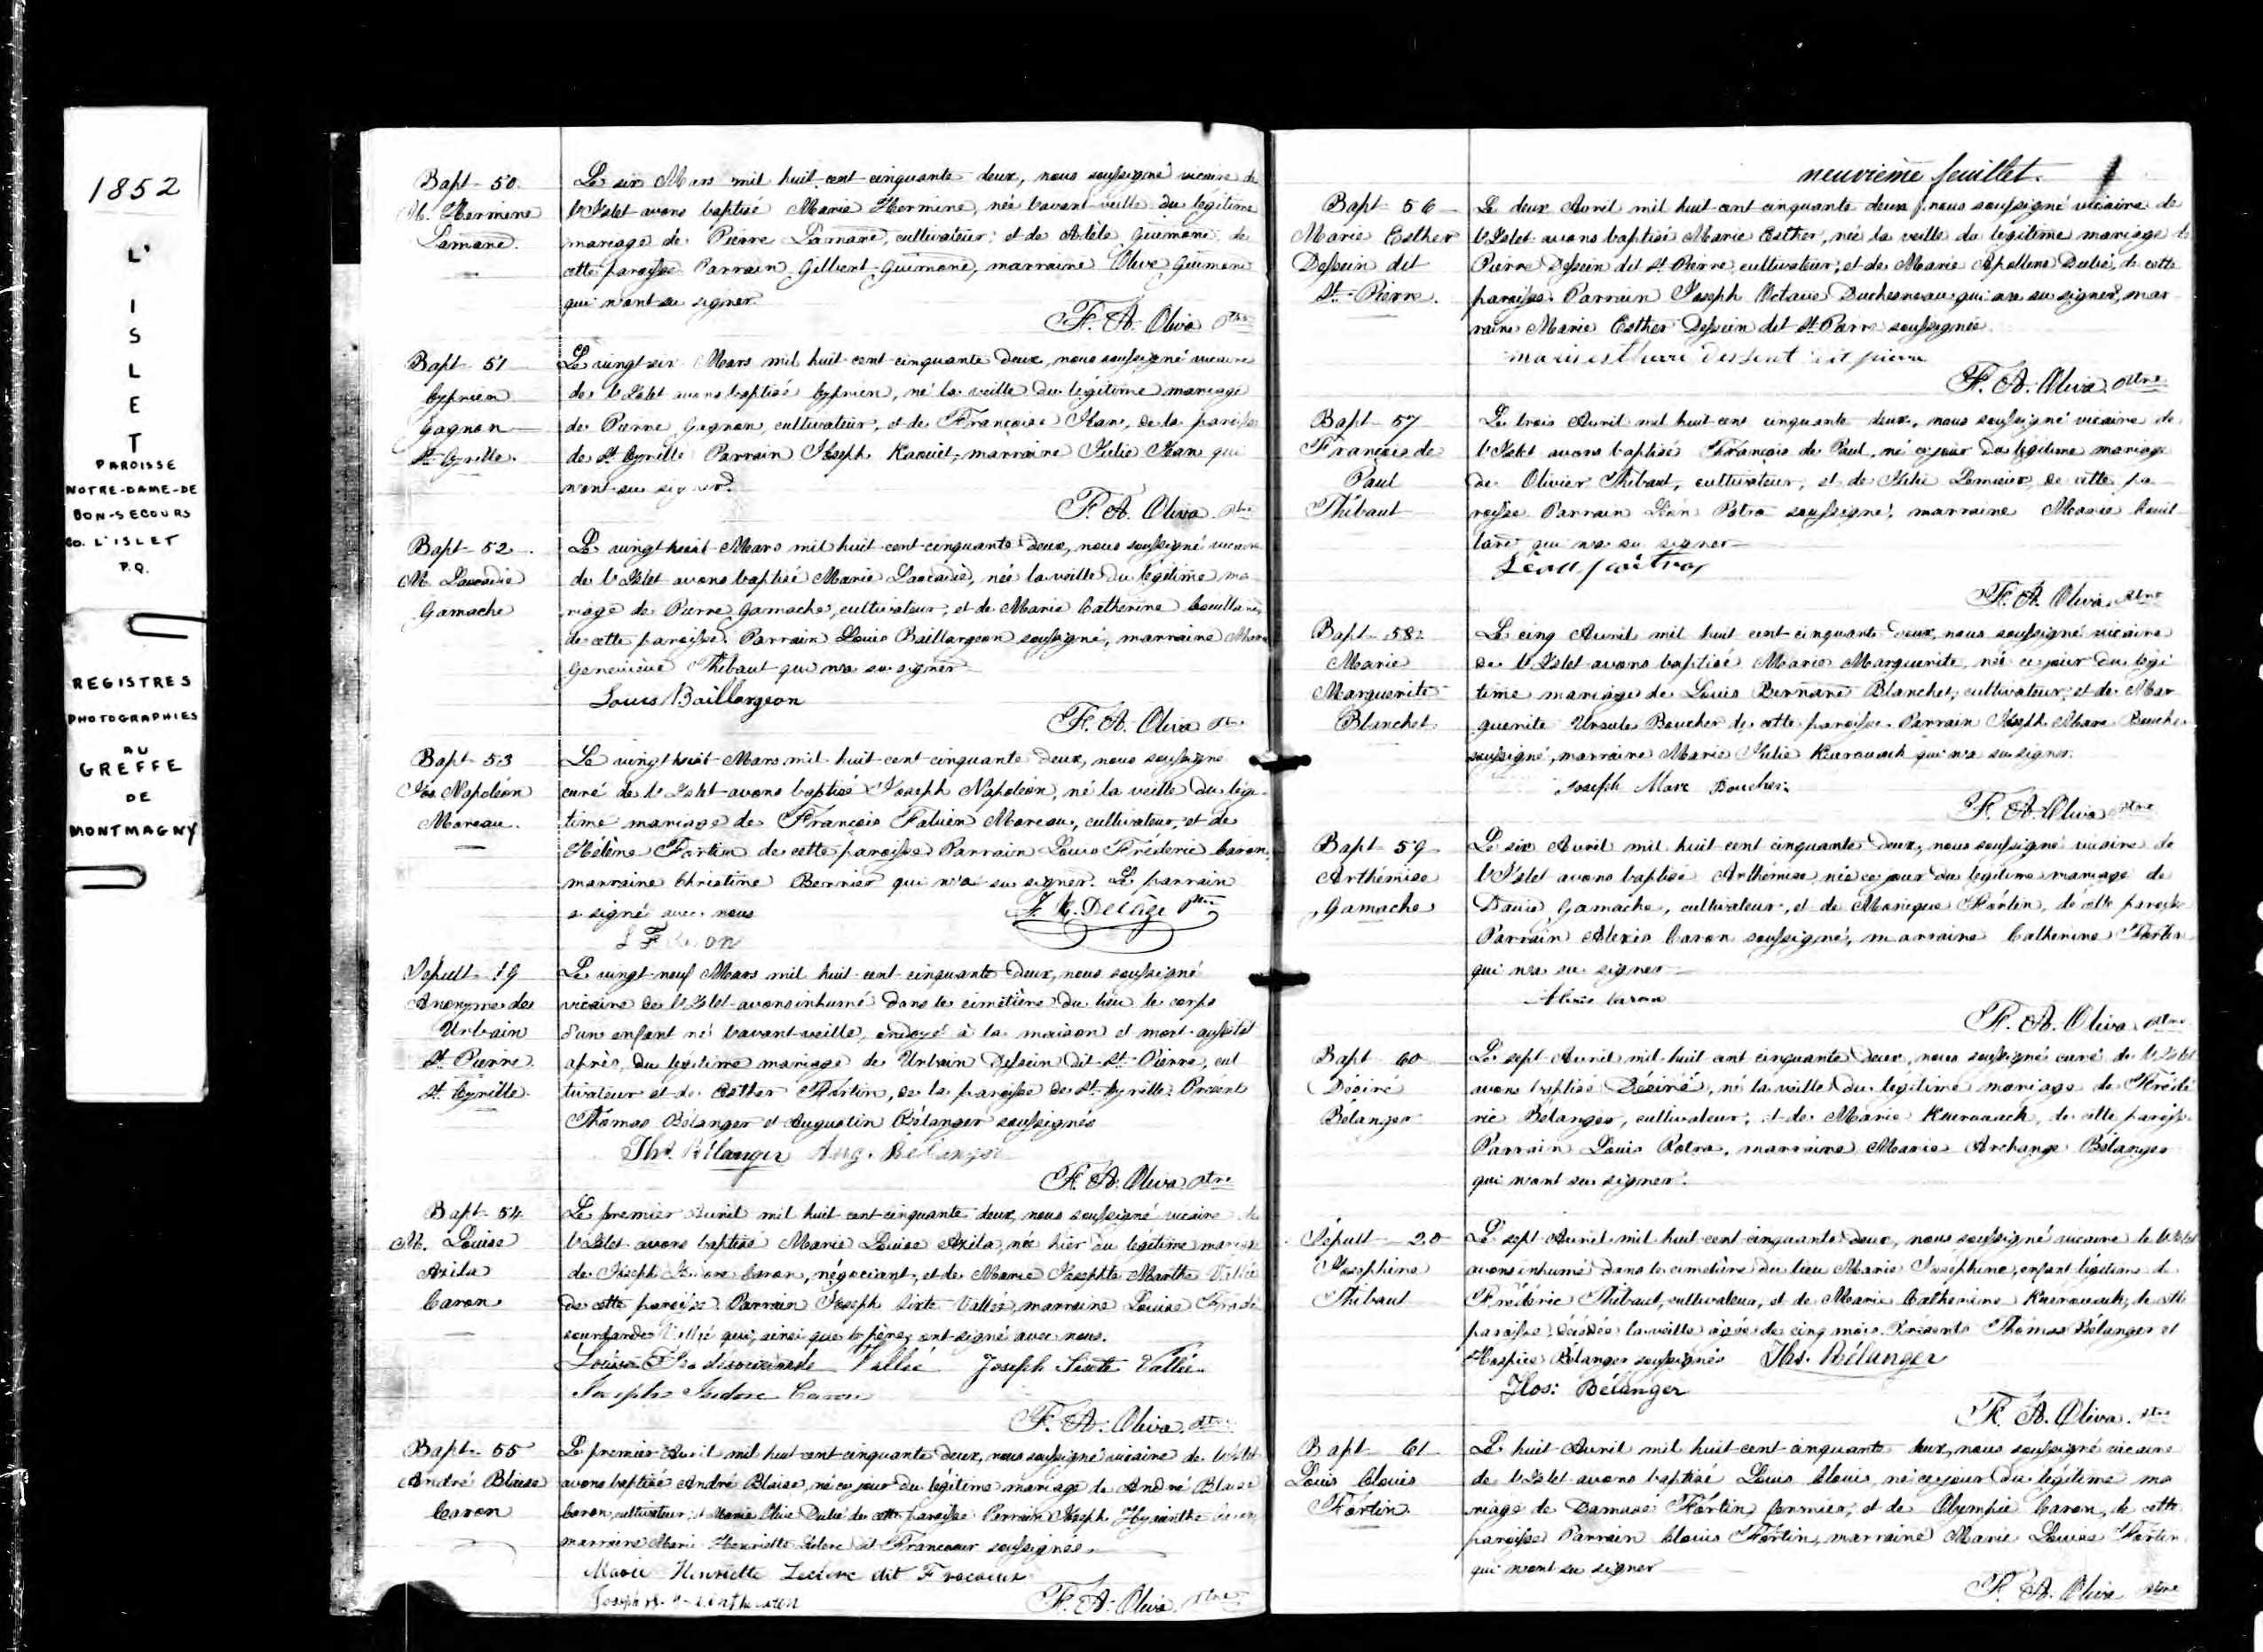 1852
L'
I
S
L
E
T
PAROISSE
NOTRE-DAME-DE
BON-SECOURS
CO. L'ISLET
P.Q.
REGISTRES
PHOTOGRAPHIES
AU
GREFFE
DE
MONTMAGNY
Bapt - 50.
M. Hermine
Lemane.
Le six Mars mil huit cent cinquante deux, nous soussigné vicaire de
l'Islet avons baptisé Marie Hermine, née l'avant-veille du légitime
mariage de Pierre cultivateur, et de Adèle Guimond, de
cette paroisse. Parrain Gilbert Guimond, marraine Olive Guimond
qui n'ont su signer
F. A. Oliva Ptre
Bapt - 51
Cyprien
Gagnon
St. Cyrille.
Le vingt-six Mars mil huit-cent-cinquante deux, nous soussigné vicaire
de l'Islet avons baptisé Cyprien, né la veille du légitime mariage
de Pierre Gagnon, cultivateur, et de Françoise Jean, de la paroisse
de St. Cyrille. Parrain Joseph marraine Julie Jean qui
n'ont su signer.
F. A. Oliva Ptre
Bapt - 52
M. Leocadie
Gamache
Le vingt huit Mars mil huit-cent-cinquante deux, nous soussigné vicaire
de l'Islet avons baptisé Marie Leocadie, née la veille du légitime ma
riage de Pierre Gamache, cultivateur, et de Marie Catherine
de cette paroisse. Parrain Louis Baillargeon soussigné, marraine Marie
Geneviève Thibaut qui n'a su signer
Louis Baillargeon
F. A. Oliva Ptre
Bapt - 53
Jos Napoléon
Moreau.
Le vingt huit Mars mil huit-cent-cinquante deux, nous soussigné
curé de l'Islet avons baptisé Joseph Napoléon, né la veille du légi
time mariage de François Fabien Moreau, cultivateur, et de
Hélène Fortin de cette paroisse. Parrain Louis Fréderic Caron,
marraine Christine Bernier qui n'a su signer. Le parrain
a signé avec nous
F. X. Delâge Ptre
Sépult - 19
Anonyme de
Urbain
St. Pierre.
St. Cyrille.
Le vingt-neuf Mars mil huit-cent-cinquante deux, nous soussigné
vicaire de l'Islet avons inhumé dans le cimetière du lieu le corps
d'un enfant né l'avant-veille, ondoyé à la maison et mort aussitôt
après, du légitime mariage de Urbain Dessein dit St. Pierre, cul
tivateur et de Esther Fortin, de la paroisse de St. Cyrille. Présent
Thomas Bélanger et Augustin Bélanger soussignés
Ths. Bélanger Aug. Bélanger
F. A. Oliva Ptre
Bapt - 54
M. Louise
Axila
Caron
Le premier Avril mil huit cent cinquante deux, nous soussigné vicaire de
l'Islet avons baptisé Marie Louise Axila, née hier du légitime mariage
de Joseph Isidore Caron, négociant, et de Marie Josephte Marthe Vallée
de cette paroisse. Parrain Joseph Sixte Vallée, marraine Louise
Vallée qui, ainsi que le père, ont signé avec nous.
Louise Vallée Joseph Sixte Vallée
Joseph Isidore Caron
F. A. Oliva Ptre
Bapt - 55
André Blaise
Caron
Le premier Avril mil huit cent cinquante deux, nous soussigné vicaire de l'Islet
avons baptisé André Blaise, né ce jour du légitime mariage de André Blaise
Caron, cultivateur, et Marie Olive Dubé de cette paroisse. Parrain Joseph Hyacinthe Caron,
marraine Marie Henriette Leclerc dit Francoeur soussignés.
Marie Henriette Leclerc dit Fracoeur
F. A. Oliva Ptre
neuvième feuillet.
Bapt - 56
Marie Esther
Dessein dit
St. Pierre.
Le deux Avril mil huit cent cinquante deux, nous soussigné vicaire de
l'Islet avons baptisé Marie Esther, née la veille du légitime mariage de
Pierre Dessein dit St. Pierre, cultivateur, et de Marie Apolline Dubé, de cette
paroisse. Parrain Joseph Octave Duchesneau qui n'a su signer, mar
raine Marie Esther Dessein dit St. Pierre soussignée
F. A. Oliva Ptre
Bapt - 57
François de
Paul
Thibaut
Le trois Avril mil huit cent cinquante deux, nous soussigné vicaire de
l'Islet avons baptisé François de Paul, né ce jour du légitime mariage
de Olivier Thibaut, cultivateur, et de Julie Lemieux, de cette pa
roisse. Parrain Léon Potra soussigné, marraine Marie Couil
lard qui n'a su signer
F. A. Oliva Ptre
Bapt - 58
Marie
Marguerite
Blanchet
Le cinq Avril mil huit cent cinquante deux, nous soussigné vicaire
de l'Islet avons baptisé Marie Marguerite, née ce jour du légi
time mariage de Louis Bernard Blanchet, cultivateur, et de Mar
guerite Ursule Boucher de cette paroisse. Parrain Joseph Marc Boucher
soussigné, marraine Marie Julie Kuerouack qui n'a su signer.
Joseph Marc Boucher
F. A. Oliva Ptre
Bapt - 59
Arthémise
Gamache
Le six Avril mil huit cent cinquante deux, nous soussigné vicaire de
l'Islet avons baptisé Arthémise, née ce jour du légitime mariage de
David Gamache, cultivateur, et de Monique Fortin, de cette paroisse
Parrain Alexis Caron soussigné, marraine Catherine Fortin
qui n'a su signer
Alexis Caron
F. A. Oliva Ptre
Bapt - 60
Désiré
Bélanger
Le sept Avril mil huit cent cinquante deux, nous soussigné curé de l'Islet
avons baptisé Désiré, né la veille du légitime mariage de Frédé
ric Bélanger, cultivateur, et de Marie Kuerouack, de cette paroisse.
Parrain Louis Potra, marraine Marie Archange Bélanger
qui n'ont su signer.
Sépult - 20
Josephine
Thibaut
Le sept Avril mil huit cent cinquante deux, nous soussigné vicaire de l'Islet
avons inhumé dans le cimetière du lieu Marie Josephine, enfant légitime de
Fréderic Thibaut, cultivateur, et de Marie Catherine Kuerouack, de cette
paroisse, décédée la veille âgée de cinq mois. Présents Thomas Bélanger et
Hospice Bélanger soussignés Ths. Bélanger
Hos: Bélanger
F. A. Oliva Ptre
Bapt - 61
Louis Clovis
Fortin.
Le huit Avril mil huit-cent cinquante deux, nous soussigné vicaire
de l'Islet avons baptisé Louis Clovis, né ce jour du légitime ma
riage de Damase Fortin, fermier, et de Olympie Caron, de cette
paroisse. Parrain Clovis Fortin, marraine Marie Louise Fortin
qui n'ont su signer
F. A. Oliva Ptre